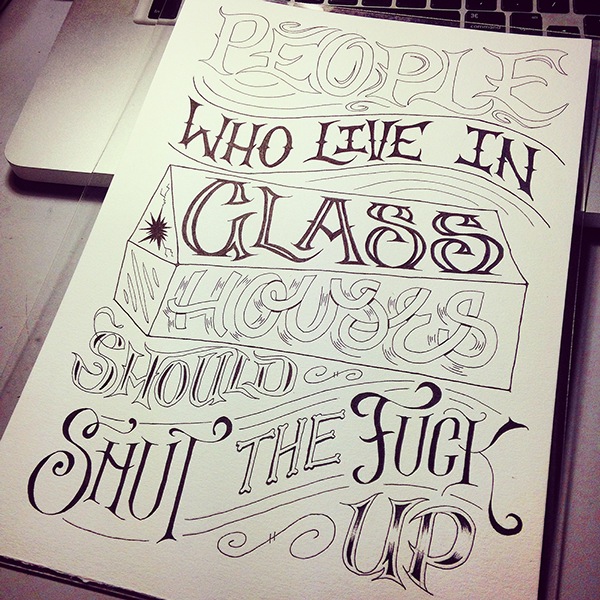 PEOPLE
WHO LIVE IN
GLASS
HOUSES
SHOULD
SHUT THE FUCK
UP